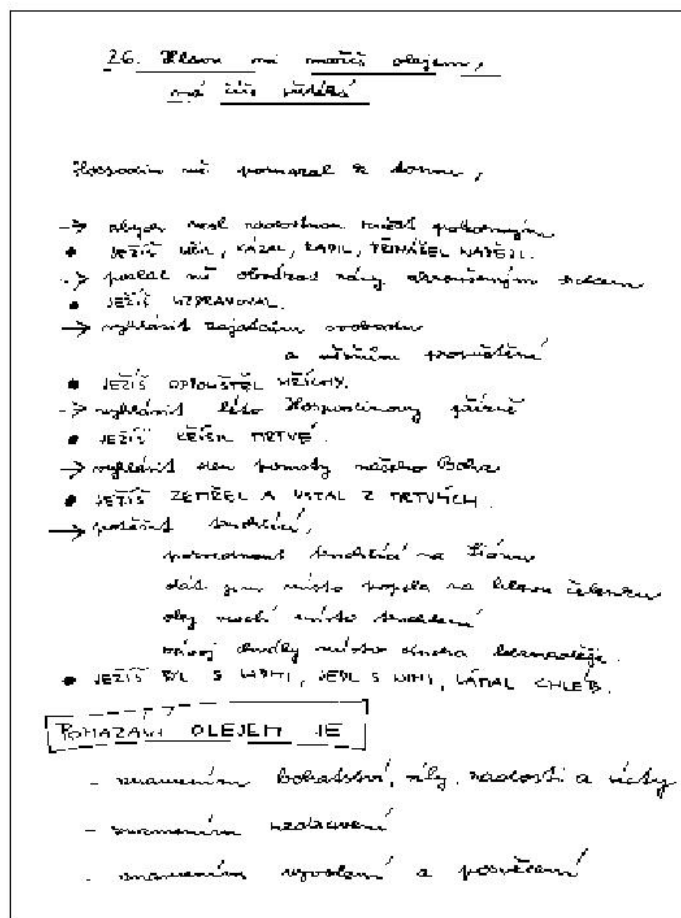 26. Hlavu mi mažeš olejem,
má číše přetéká
Hospodin mě pomazal k tomu,
→ abych nesl radostnou zvěst pokorným
• JEŽÍŠ UČIL, KÁZAL, RADIL, PŘINÁŠEL NADĚJI.
→ poslal mě obvázat rány zkroušeným srdcem
• JEŽÍŠ UZDRAVOVAL.
→ vyhlásit zajatcům svobodu
a vězňům propuštění
• JEŽÍŠ ODPOUŠTĚL HŘÍCHY.
→ vyhlásit léto Hospodinovy přízně
• JEŽÍŠ KŘÍSIL MRTVÉ.
→ vyhlásit den pomsty našeho Boha
• JEŽÍŠ ZEMŘEL A VSTAL Z MRTVÝCH.
→ potěšit truchlící,
pozvednout truchlící na Siónu
dát jim místo popela na hlavu čelenku
olej veselí místo truchlení
závoj chvály místo ducha beznaděje.
• JEŽÍŠ BYL S LIDMI, JEDL S NIMI, LÁMAL CHLÉB.
POMAZÁNÍ OLEJEM JE
- znamením bohatství, síly, radosti a úcty
- znamením uzdravení
- znamením vyvolení a posvěcení